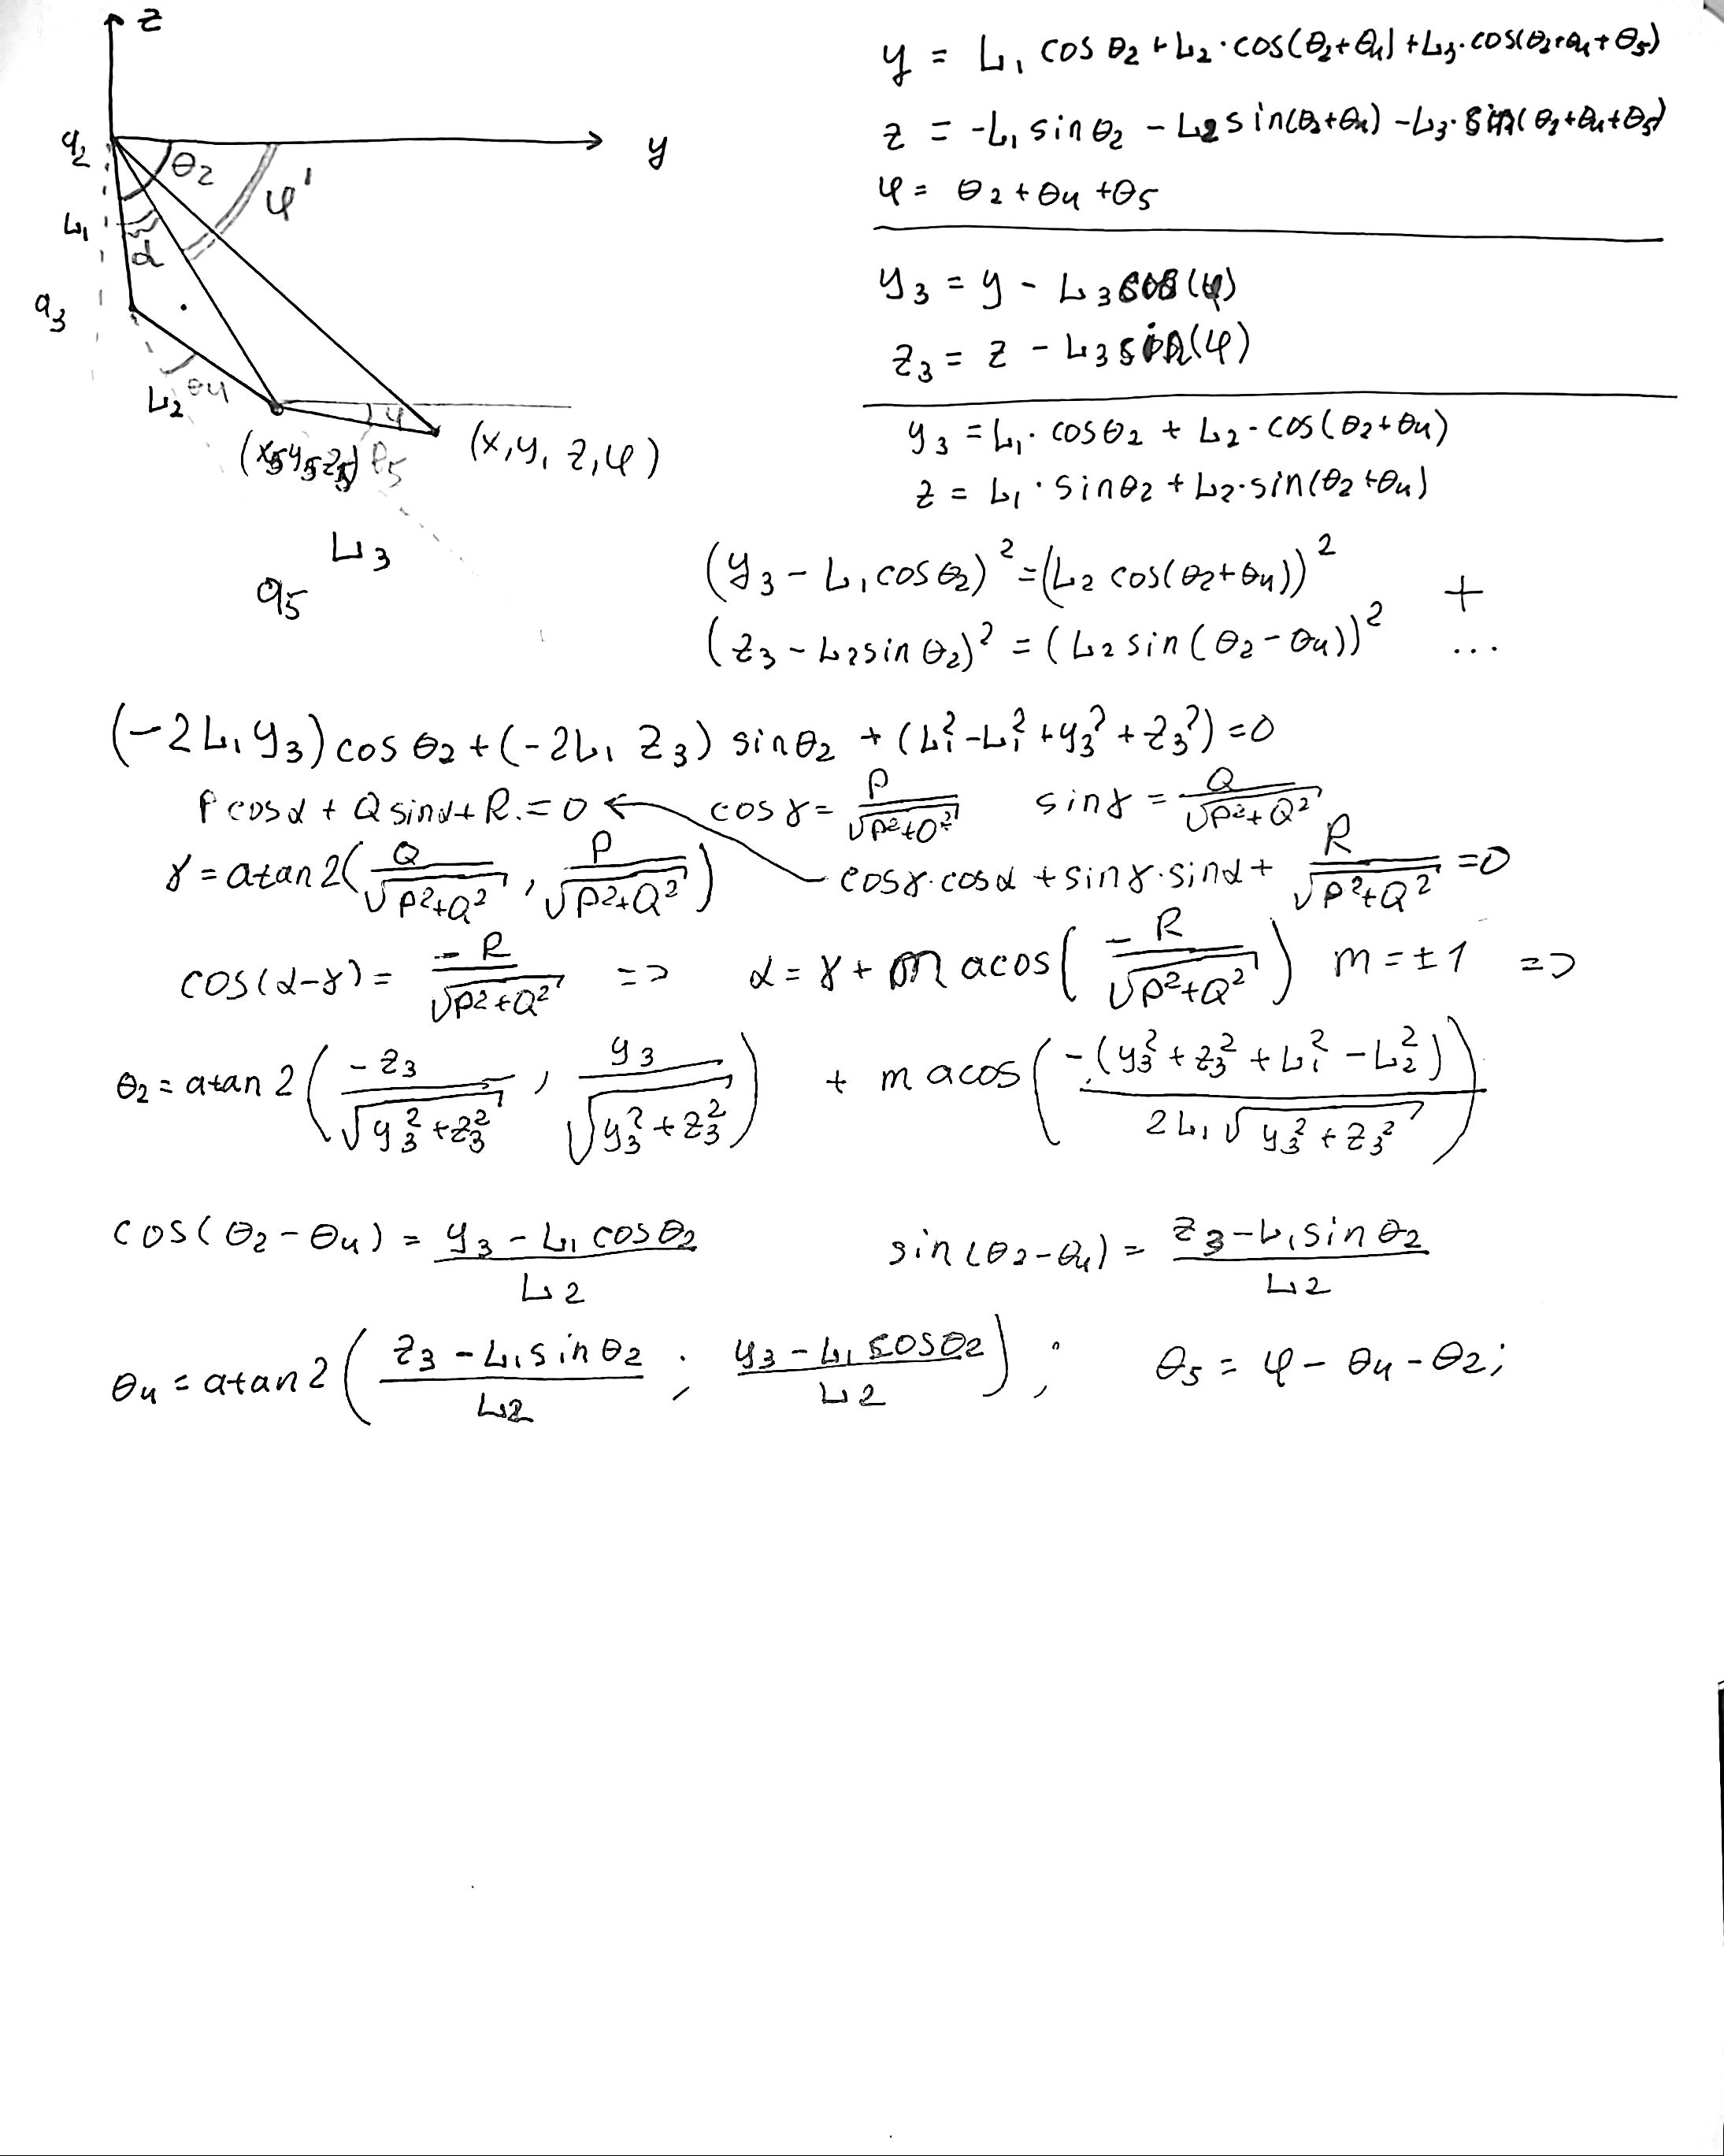 z
y
q₂
θ₂
φ'
L₁
α
q₃
L₂
θ₄
φ
(x, y, z, φ)
θ₅
L₃
q₅
y = L₁ cos θ₂ + L₂ · cos(θ₂+θ₄) + L₃ · cos(θ₂+θ₄+θ₅)
z = -L₁ sin θ₂ - L₂ sin(θ₂+θ₄) - L₃ · sin(θ₂+θ₄+θ₅)
φ = θ₂ + θ₄ + θ₅
y₃ = y - L₃ cos(φ)
z₃ = z - L₃ sin(φ)
y₃ = L₁ · cosθ₂ + L₂ · cos(θ₂+θ₄)
z = L₁ · sinθ₂ + L₂ · sin(θ₂+θ₄)
(y₃ - L₁ cosθ₂)² = (L₂ cos(θ₂+θ₄))² +
(z₃ - L₂ sin θ₂)² = (L₂ sin(θ₂-θ₄))² ...
(-2L₁y₃) cos θ₂ + (-2L₁ z₃) sinθ₂ + (L₁² - L₁² + y₃² + z₃²) = 0
P cosα + Q sinα + R. = 0 cos γ = P/√(P²+Q²) sin γ = Q/√(P²+Q²)
γ = atan2(Q/√(P²+Q²), P/√(P²+Q²)) cosγ·cosα + sinγ·sinα + R/√(P²+Q²) = 0
cos(α-γ) = -R/√(P²+Q²) => α = γ + m acos(-R/√(P²+Q²)) m = ±1 =>
θ₂ = atan2(-z₃/√(y₃²+z₃²), y₃/√(y₃²+z₃²)) + m acos(-(y₃²+z₃²+L₁²-L₂²)/2L₁√(y₃²+z₃²))
cos(θ₂-θ₄) = (y₃ - L₁ cosθ₂)/L₂ sin(θ₂-θ₄) = (z₃ - L₁ sin θ₂)/L₂
θ₄ = atan2((z₃ - L₁ sin θ₂)/L₂ ; (y₃ - L₁ cosθ₂)/L₂) ; θ₅ = φ - θ₄ - θ₂;